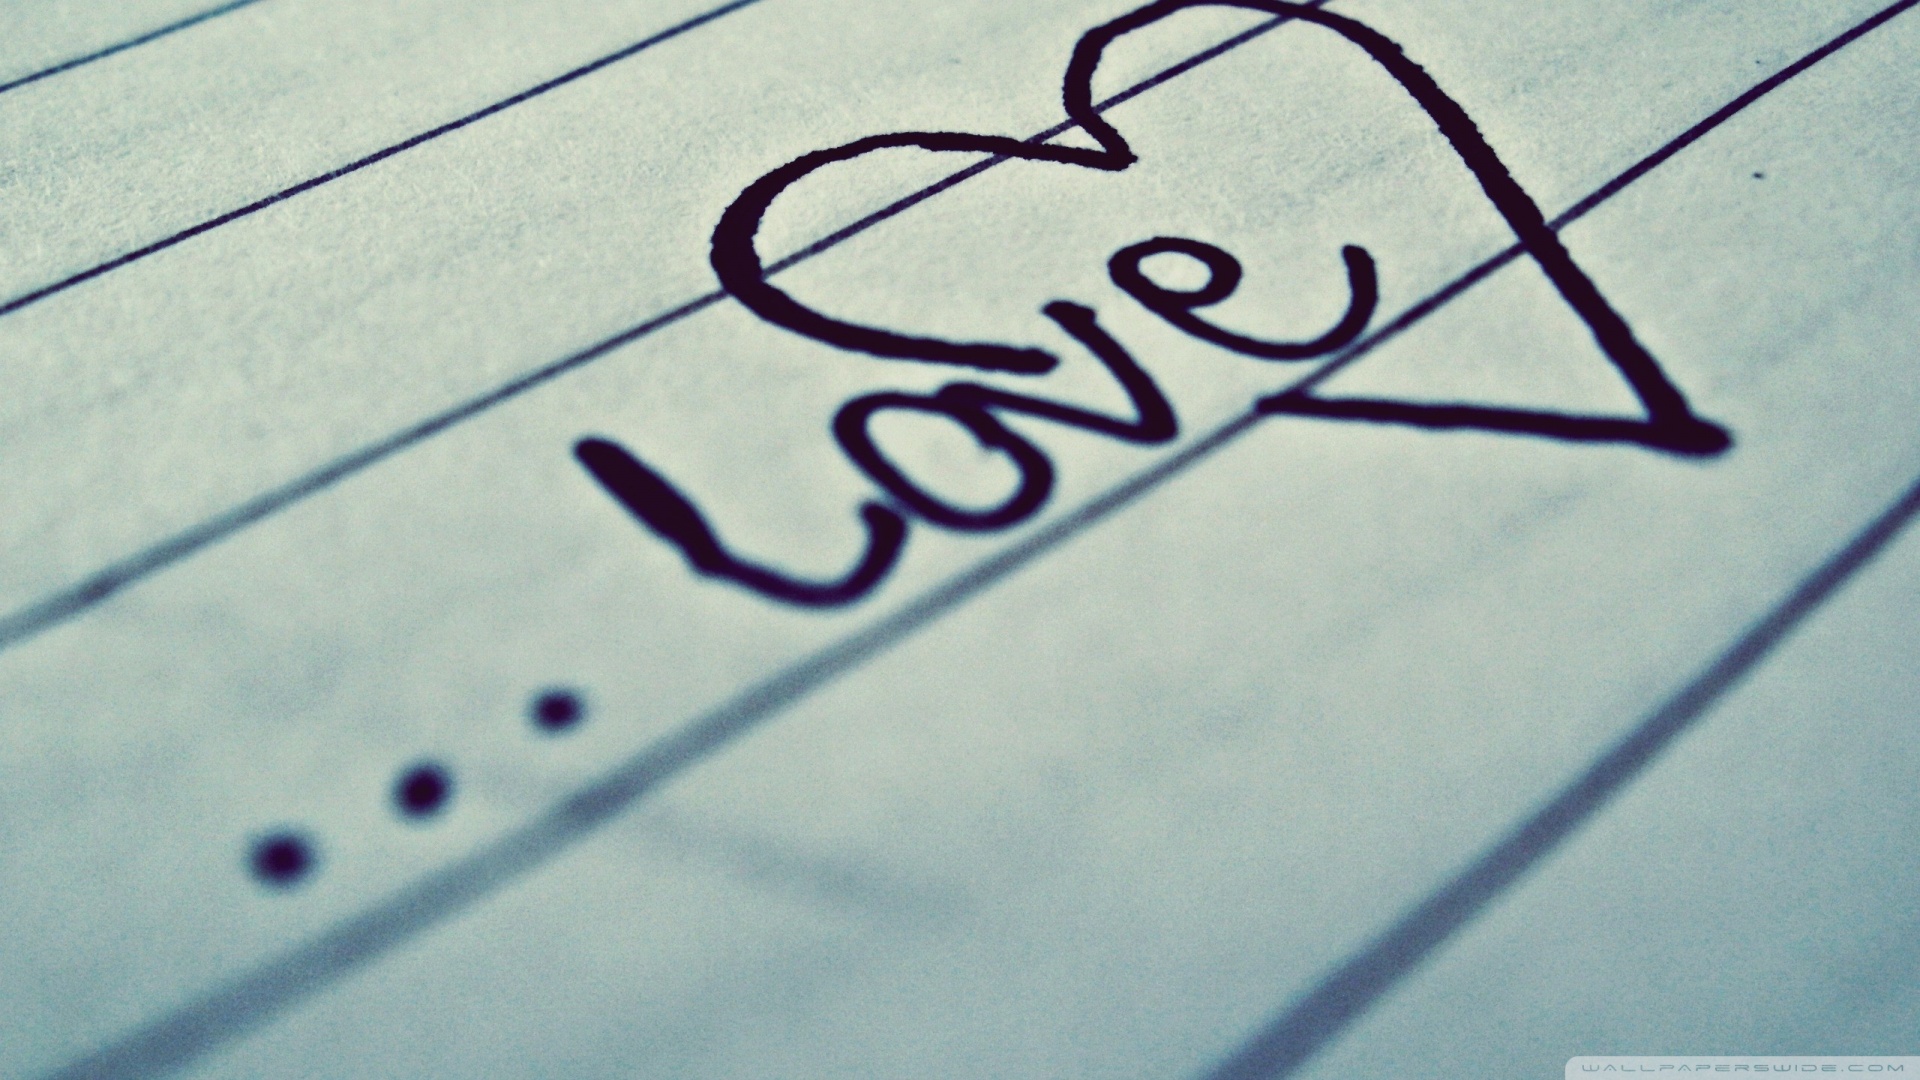 ... Love
WALLPAPERSWIDE.COM